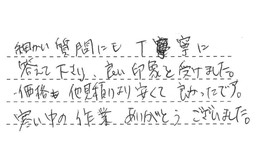 細かい質問にも丁寧に
答えて下さり、良い印象を受けました。
価格も他見積りより安くて良かったです。
寒い中の作業ありがとうございました。